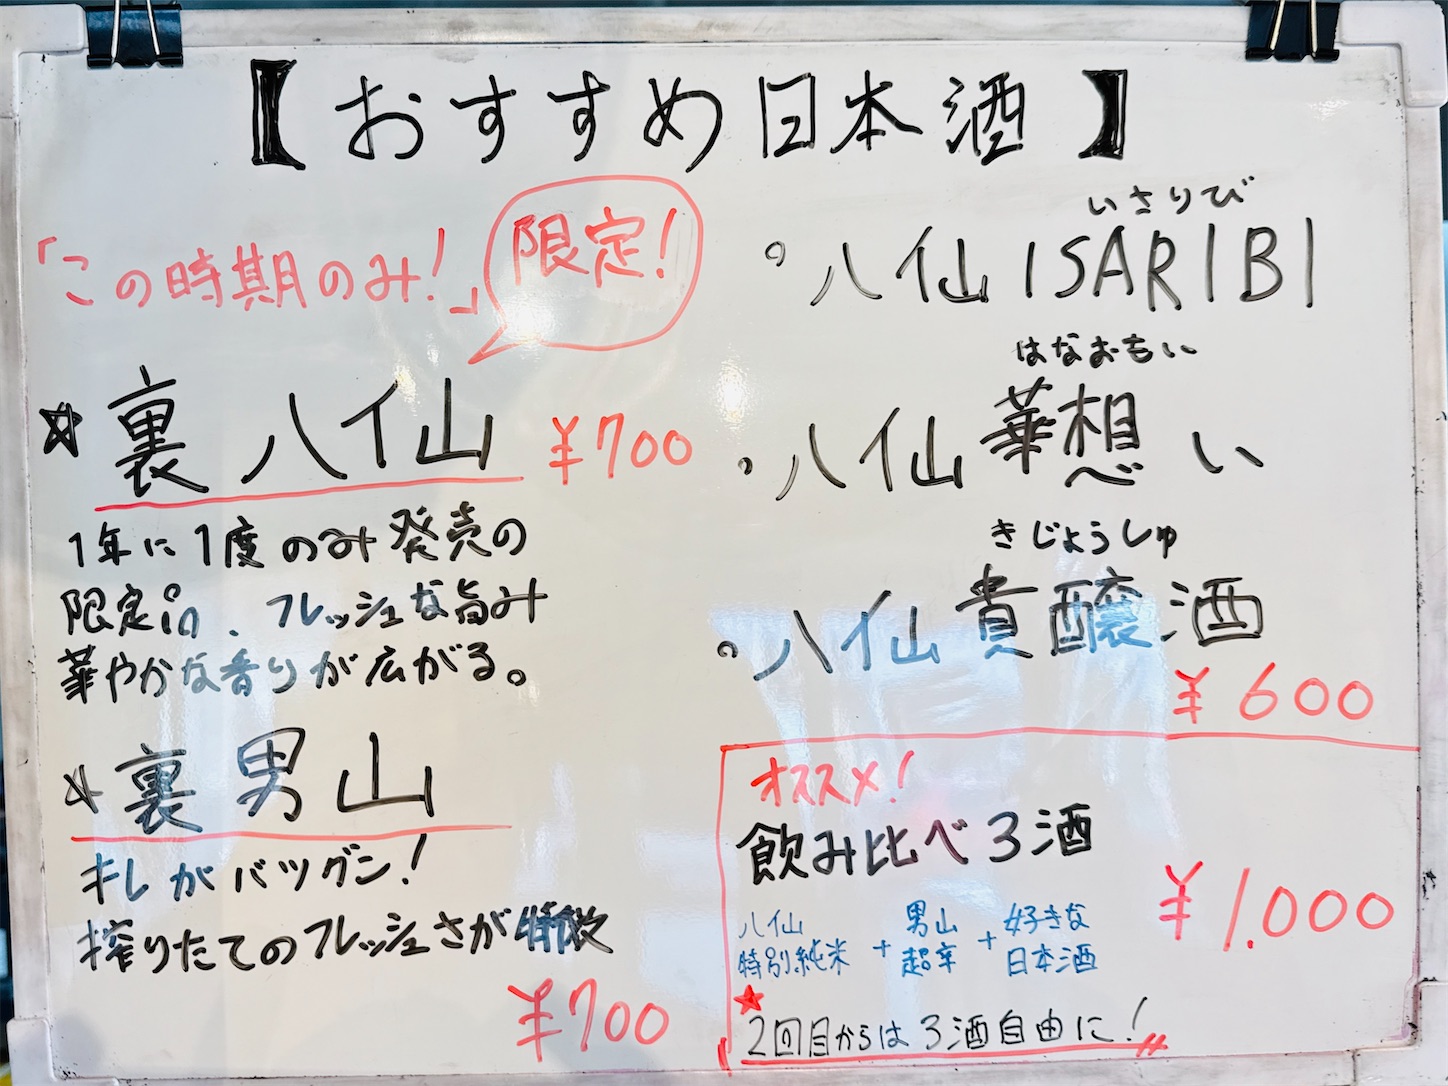 【おすすめ日本酒】
「この時期のみ！」
限定！
☆裏八仙 ¥700
1年に1度のみ発売の
限定酒。フレッシュな旨み
華やかな香りが広がる。
☆裏男山
キレがバツグン！
搾りたてのフレッシュさが特徴
¥700
いさりび
。八仙ISARIBI
はなおもい
。八仙華想い
きじょうしゅ
。八仙貴醸酒
¥600
オススメ！
飲み比べ3酒
¥1.000
八仙 男山 好きな
特別純米 + 超辛 + 日本酒
★
2回目からは3酒自由に！